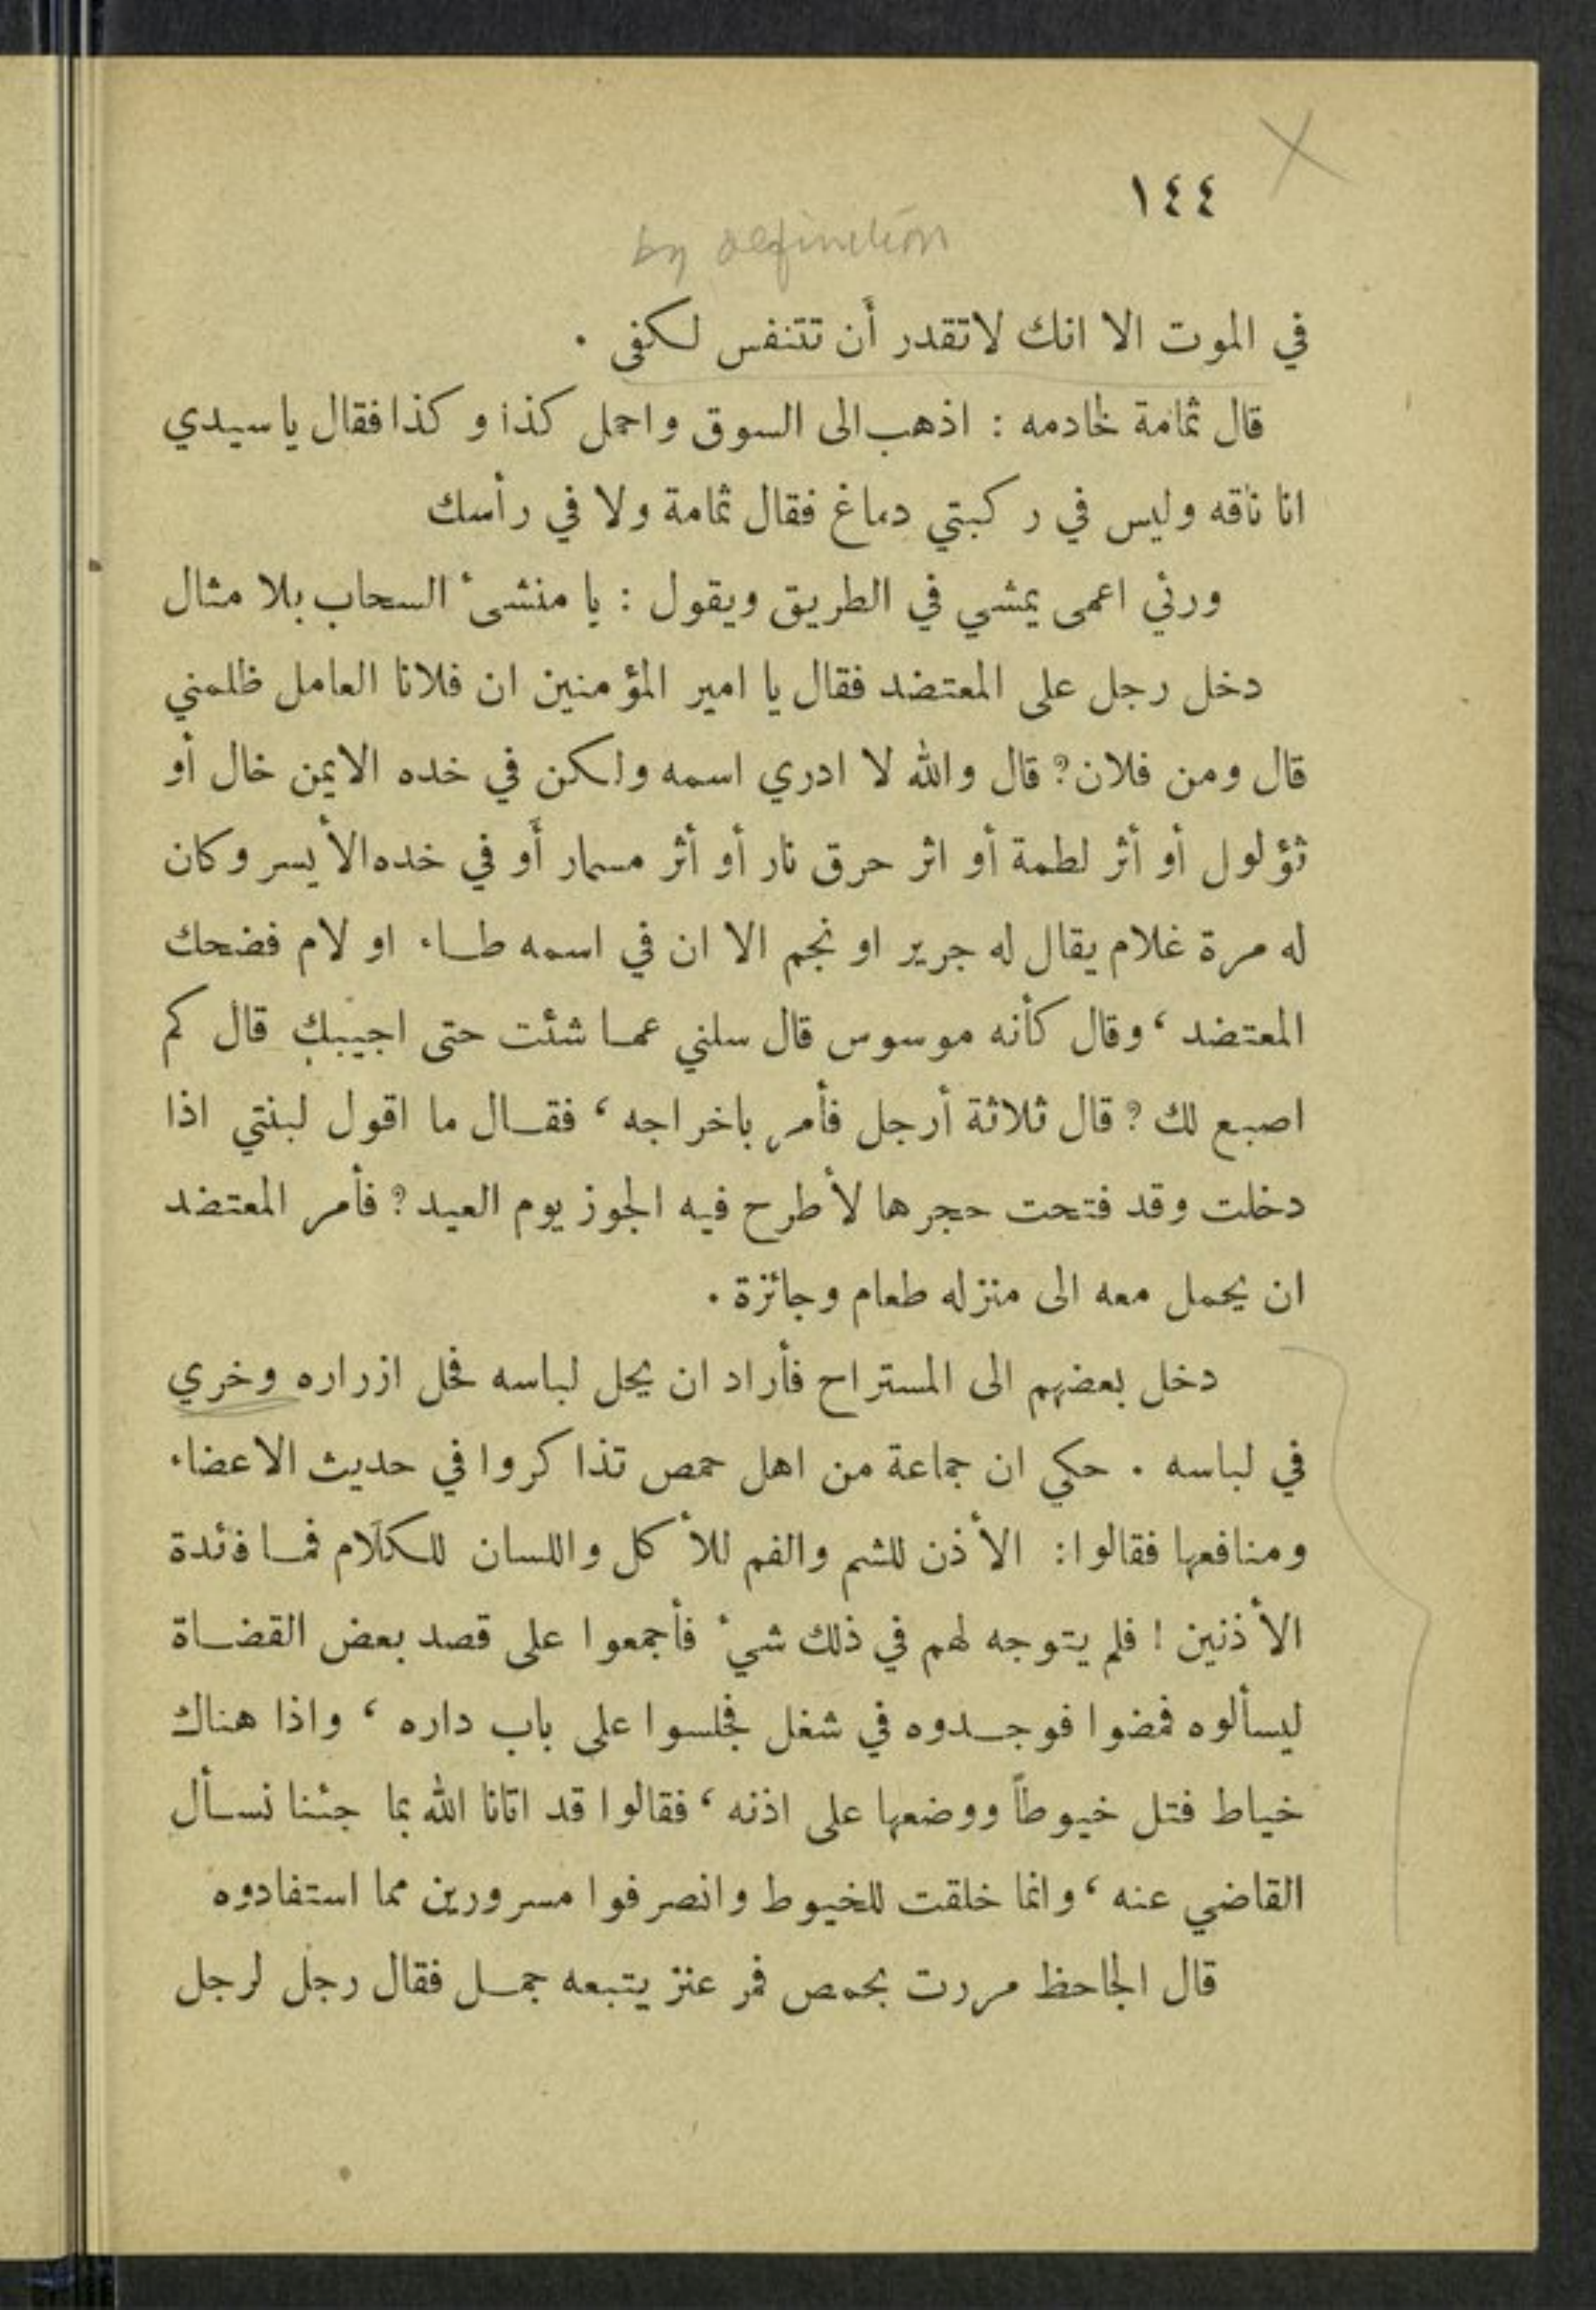 ١٤٤
by definition
في الموت الا انك لاتقدر أن تتنفس لكفى .
قال ثمامة لخادمه : اذهب الى السوق واحمل كذا و كذا فقال يا سيدي
انا ناقه وليس في ركبتي دماغ فقال ثمامة ولا في رأسك
ورئي اعمى يمشي في الطريق ويقول : يا منشئ السحاب بلا مثال
دخل رجل على المعتضد فقال يا امير المؤمنين ان فلانا العامل ظلمني
قال ومن فلان؟ قال والله لا ادري اسمه ولكن في خده الايمن خال أو
ثؤلول أو أثر لطمة أو اثر حرق نار أو أثر مسمار أو في خده الأيسر وكان
له مرة غلام يقال له جرير او نجم الا ان في اسمه طاء او لام فضحك
المعتضد ، وقال كأنه موسوس قال سلني عما شئت حتى اجيبك قال كم
اصبع لك ؟ قال ثلاثة أرجل فأمر باخراجه ، فقال ما اقول لبنتي اذا
دخلت وقد فتحت حجرها لأطرح فيه الجوز يوم العيد ؟ فأمر المعتضد
ان يحمل معه الى منزله طعام وجائزة .
دخل بعضهم الى المستراح فأراد ان يحل لباسه فحل ازراره وخري
في لباسه . حكي ان جماعة من اهل حمص تذاكروا في حديث الاعضاء
ومنافعها فقالوا : الأذن للشم والفم للأكل واللسان للكلام فما فئدة
الأذنين ! فلم يتوجه لهم في ذلك شيء فأجمعوا على قصد بعض القضاة
ليسألوه فمضوا فوجدوه في شغل فجلسوا على باب داره ، واذا هناك
خياط فتل خيوطاً ووضعها على اذنه ، فقالوا قد اتانا الله بما جئنا نسأل
القاضي عنه ، وانما خلقت للخيوط وانصرفوا مسرورين مما استفادوه
قال الجاحظ مررت بحمص فمر عنز يتبعه جمل فقال رجل لرجل